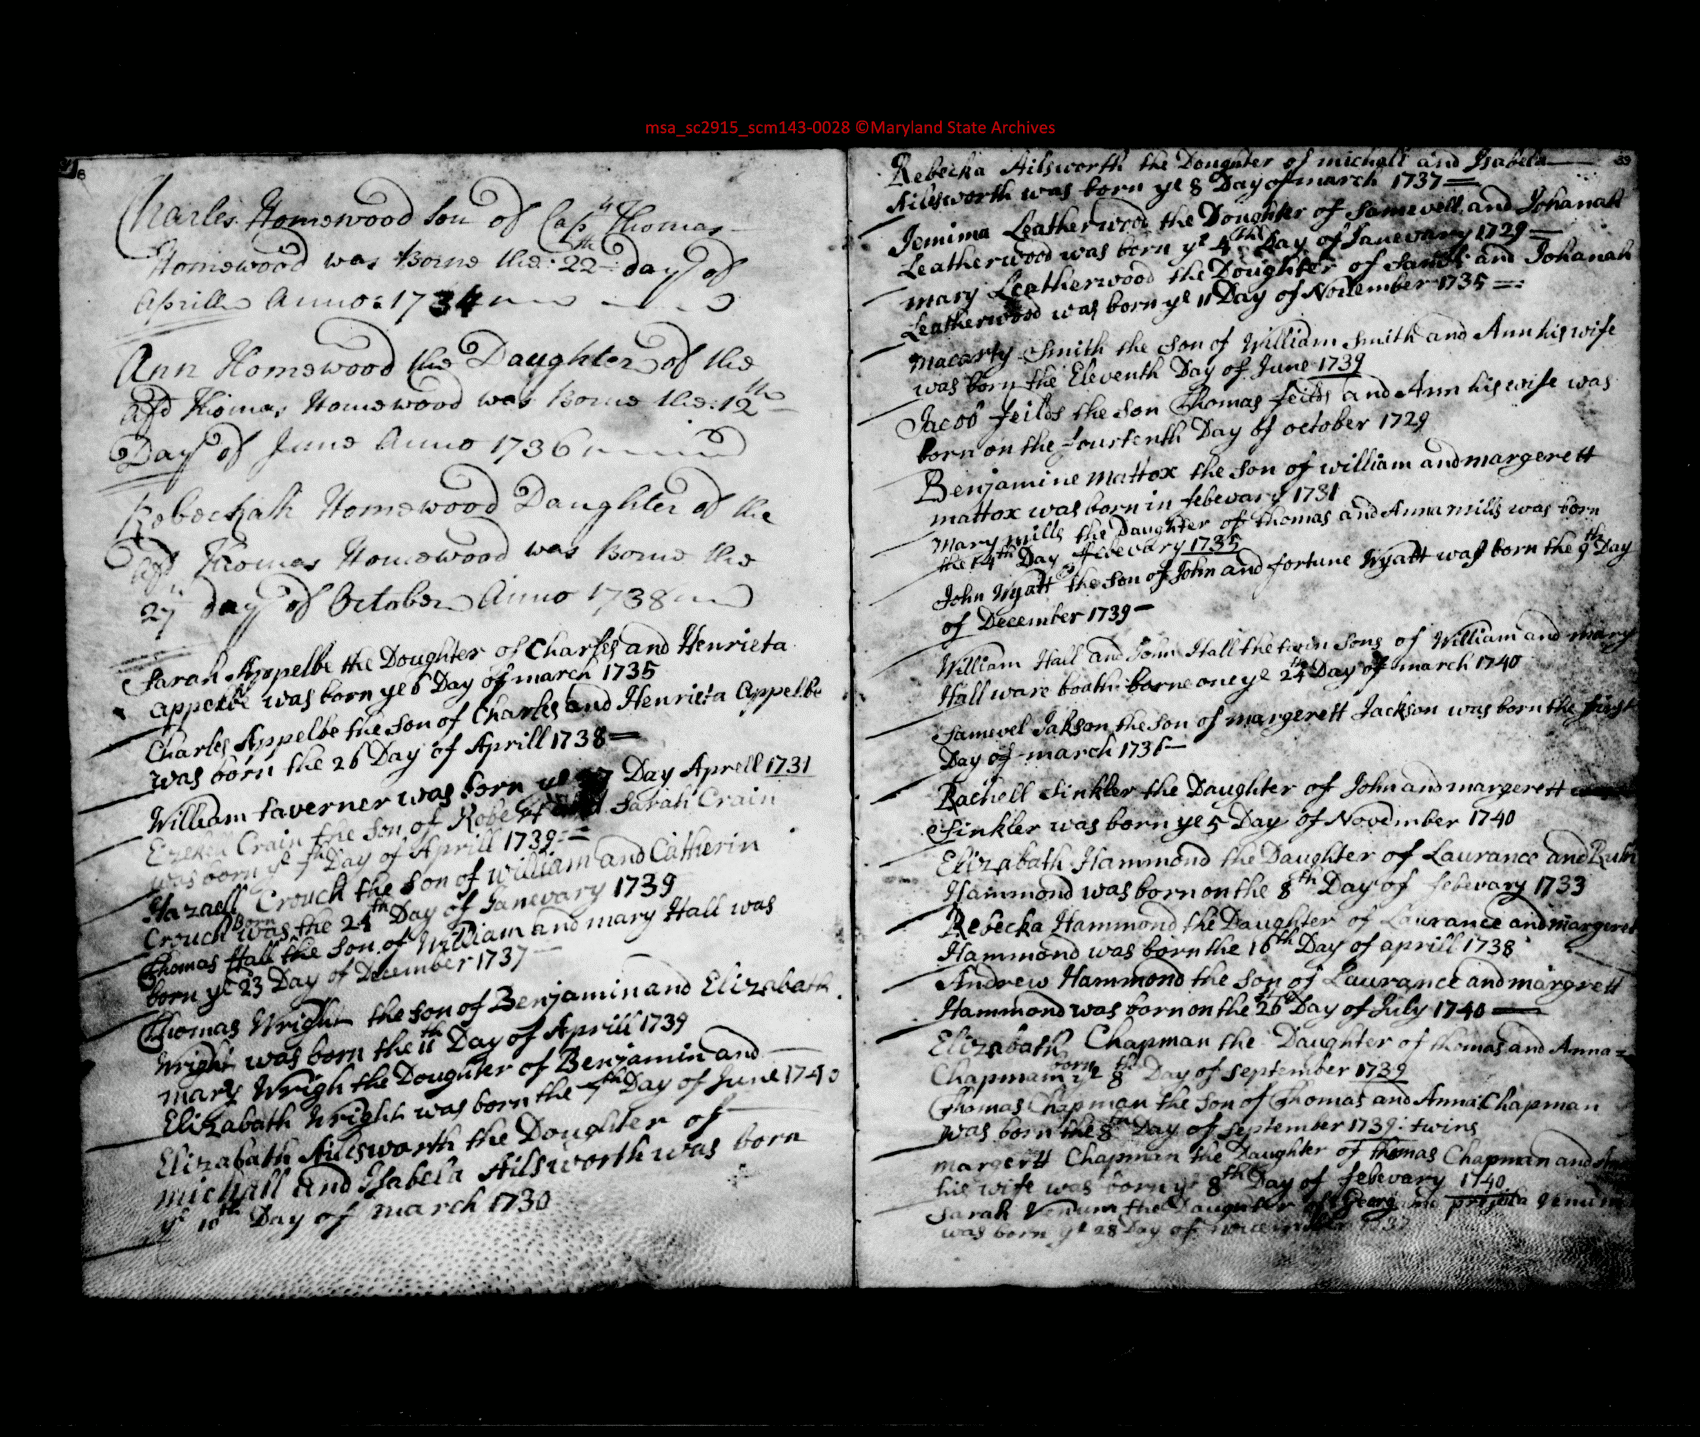 msa_sc2915_scm143-0028 ©Maryland State Archives
Charles Homewood Son of Capt Thomas
Homewood was Borne the: 22th day of
Aprill Anno: 1734
Ann Homewood the Daughter of the
afsd Thomas Homewood was Borne the: 12th
Day of June Anno 1736
Rebeckah Homewood Daughter of the
Thomas Homewood was Borne the
27 day of October Anno 1738
Sarah Appelbe the Doughter of Charles and Henrieta
appelbe was born ye 6 Day of march 1735
Charles Appelbe the Son of Charles and Henrieta Appelbe
was born the 26 Day of Aprill 1738
William taverner was born ye 7 Day Aprell 1731
Ezekel Crain the Son of Robert and Sarah Crain
was born ye 7th Day of Aprill 1739
Hazaell Crouch the Son of william and Catherin
Crouch was Born the 24th Day of Janevary 1739
Thomas Hall the Son of William and mary Hall was
born ye 23 Day of December 1737
Thomas Wright the Son of Benjamin and Elizabath
Wright was born the 11th Day of Aprill 1739
mary Wrigh the Doughter of Benjamin and
Elizabath Wright was born the 7th Day of June 1740
Elizabath Ailsworth the Doughter of
michall and Isabela Ailsworth was born
ye 10th Day of march 1730
39
Rebecka Ailsworth the Doughter of michall and Isabela
Ailesworth was born ye 8 Day of march 1737
Jemima Leatherwod the Doughter of Samevell and Johanah
Leatherwood was born ye 4th Day of Janevary 1729
mary Leatherwood the Doughter of Samll and Johanah
Leatherwood was born ye 11 Day of November 1735
macarty Smith the Son of William Smith and Ann his wife
was born the Eleventh Day of June 1739
Jacob feilds the Son Thomas feilds and Ann his wife was
born on the fourtenth Day of october 1729
Benjamine mattox the Son of william and margerett
mattox was born in febevary 1731
Mary mills the Daughter of thomas and Anna mills was born
the 14th Day febevary 1735
John Wyatt the Son of John and fortune Wyatt was born the 9th Day
of December 1739
William Hall and John Hall the twin Sons of William and mary
Hall ware boath borne one ye 24th Day of march 1740
Samevel Jakson the Son of margerett Jackson was born the first
Day of march 1736
Rachell Sinkler the Daughter of John and margerett
Sinkler was born ye 5 Day of November 1740
Elizabath Hammond the Daughter of Laurance and
Hammond was born on the 8th Day of febevary 1733
Rebecka Hammond the Daughter of Laurance and margeret
Hammond was born the 16th Day of aprill 1738
Andrew Hammond the Son of Laurance and margrett
Hammond was born on the 26th Day of July 1740
Elizabath Chapman the Daughter of thomas and Anna
Chapmam born ye 8th Day of September 1739
Thomas Chapman the Son of Thomas and Anna Chapman
was born the 8th Day of September 1739: twins
margertt Chapman the Daughter of thomas Chapman and
his wife was born ye 8th Day of febevary 1740
Sarah Venum the Daughter of Georg and
was born ye 28 Day of 1737